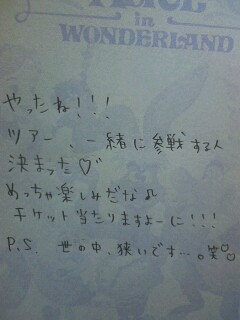 ALICE
in
WONDERLAND
やったね!!!
ツアー、一緒に参戦する人
決まった♡
めっちゃ楽しみだな♪
チケット当たりますよーに!!!
P.S. 世の中、狭いです…。笑